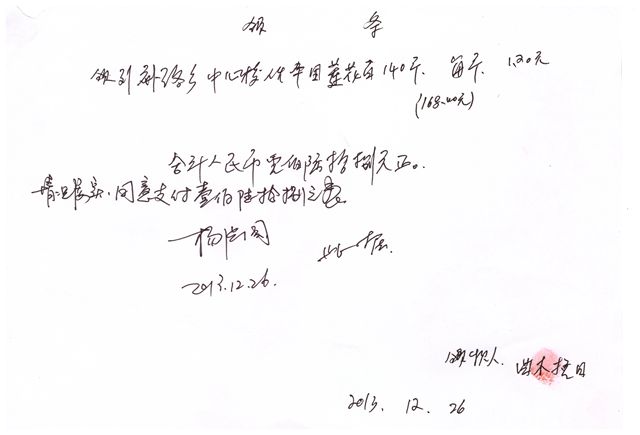 领 条
领到 中心校 莲花白140斤. 每斤 1.20元
(168.00元)
合计人民币壹佰陆拾捌元正。
情况属实. 同意支付壹佰陆拾捌元
杨
2013.12.26.
此据.
领款人. 木 日
2013. 12. 26